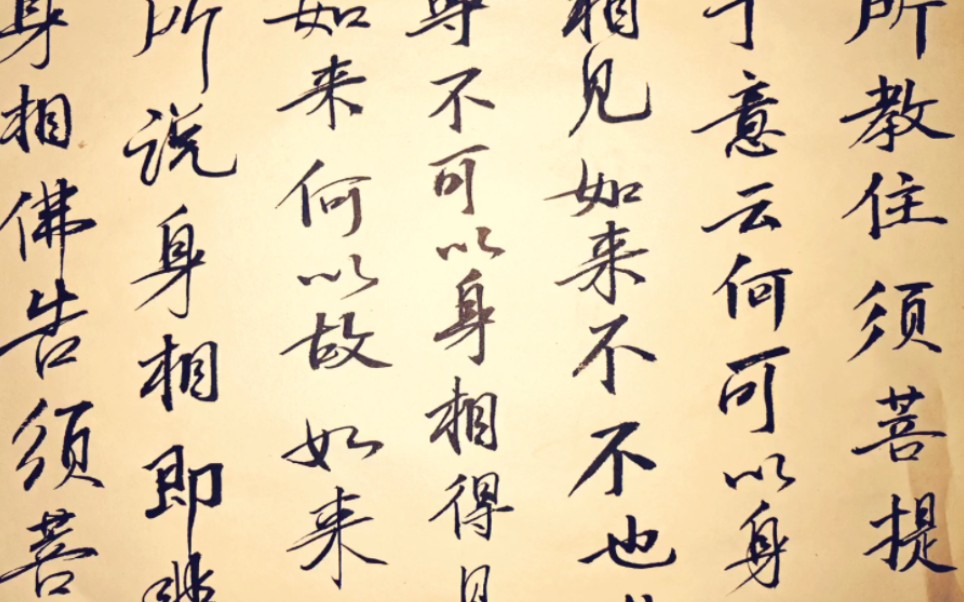 所教住须菩提
于意云何可以身
相见如来不不也
尊不可以身相得见
如来何以故如来
所说身相即非
身相佛告须菩